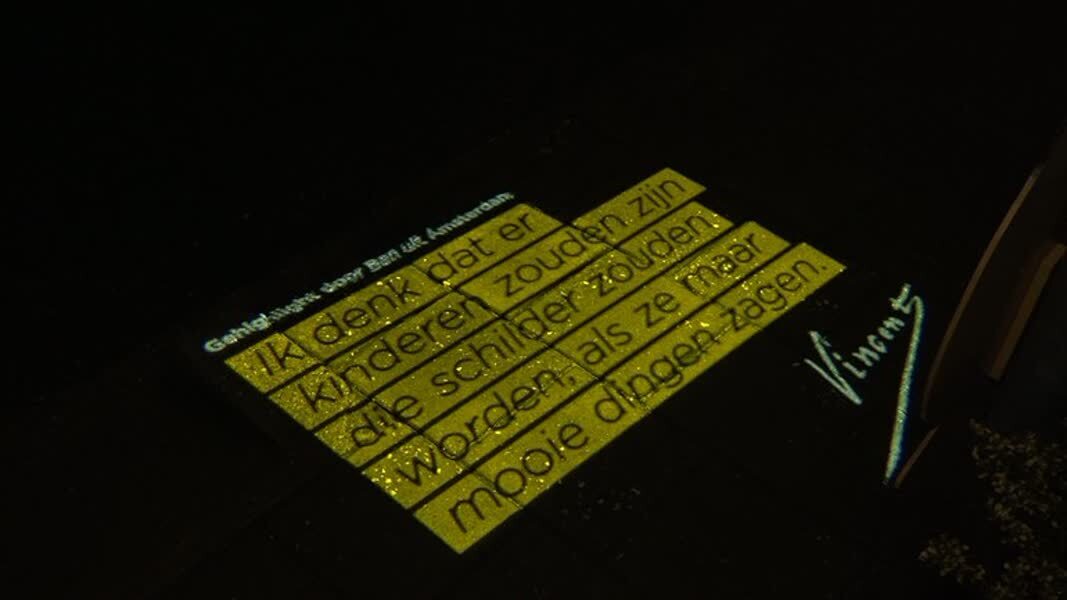 Gehighlight door Ben uit Amsterdam
Ik denk dat er
kinderen zouden zijn
die schilder zouden
worden, als ze maar
mooie dingen zagen.
Vincent